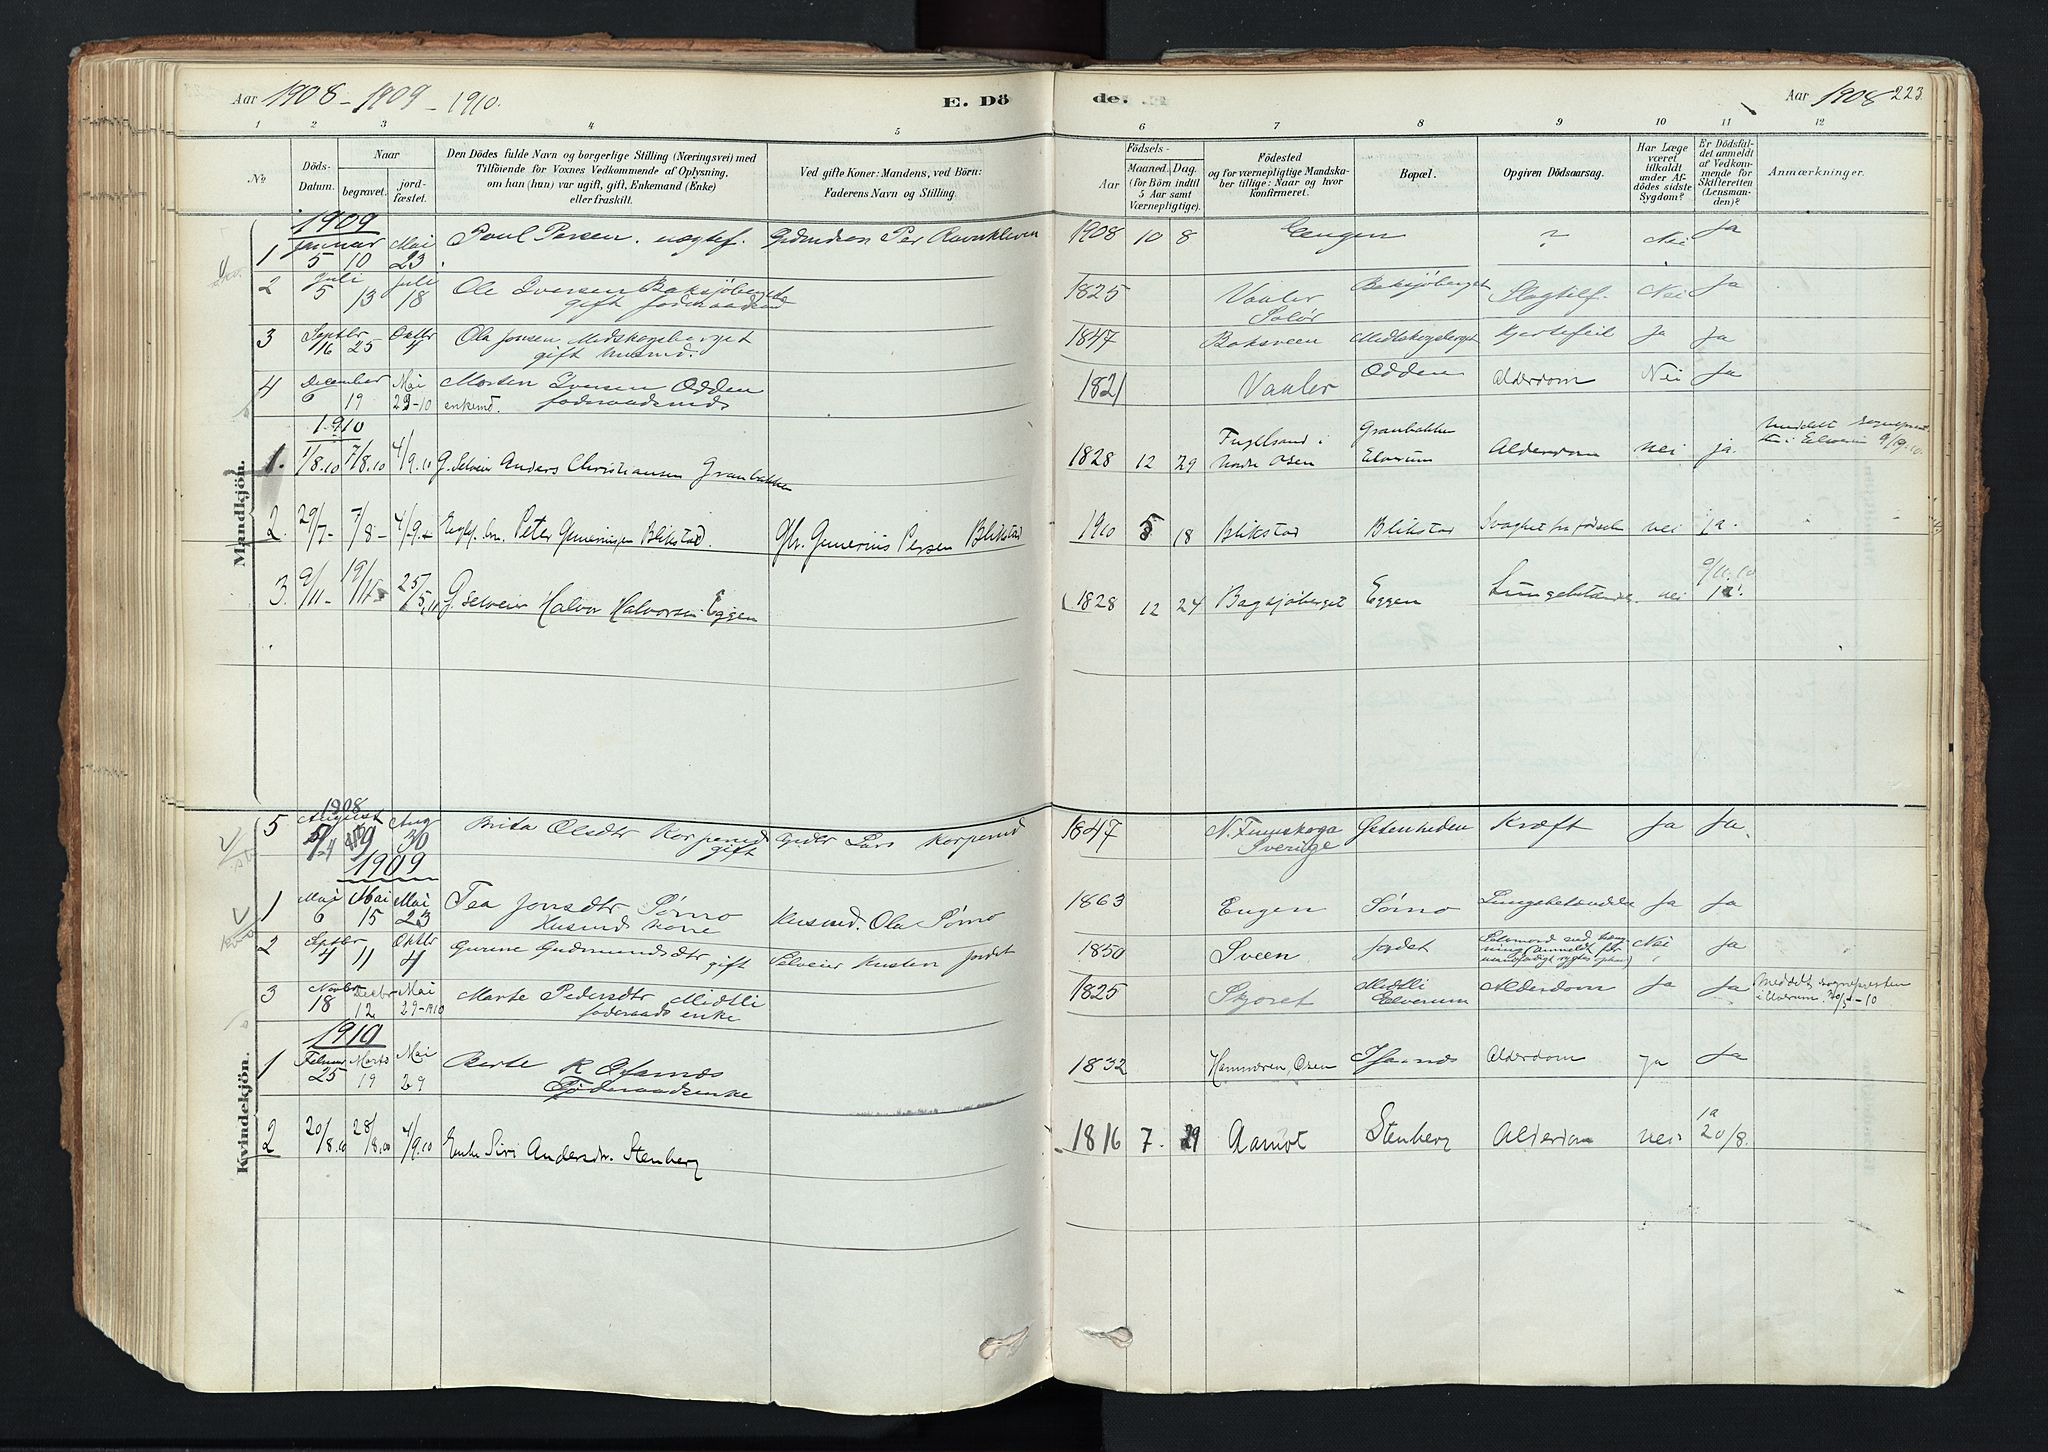 Aar 1908 - 1909 - 1910.
E. Dö
de.
Aar 1908
223.
1 2 3 4 5 6 7 8 9 10 11 12
No.
Döds-Datum.
Naar
begravet.
jord-fæstet.
Den Dödes fulde Navn og borgerlige Stilling (Næringsvei) med
Tilföiende for Voxnes Vedkommende af Oplysning,
om han (hun) var ugift, gift, Enkemand (Enke)
eller fraskilt.
Ved gifte Koner: Mandens, ved Börn:
Faderens Navn og Stilling.
Födsels-
Aar
Maaned. Dag.
(for Börn indtil
5 Aar samt
Værnepligtige).
Födested
og for værnepligtige Mandska-
ber tillige: Naar og hvor
konfirmeret.
Bopæl.
Opgiven Dödsaarsag.
Har Læge
været
tilkaldt
under Af-
dödes sidste
Sygdom?
Er Dödsfal-
det anmeldt
af Vedkom-
mende for
Skifteretten
(Lensman-
den)?
Anmærkninger.
Mandkjön.
1909
1 Januar 5 10 Mai 23 Poul Persen. uægtef. Per Ravnkleven 1908 10 8 Engen ? Nei Ja
2 Juli 5 13 Juli 18 Ole Iversen Baksjöberget
gift föderaadsmd 1825 Vaaler
Solör Baksjöberget Slagtilf. Nei Ja
3 Septbr 16 25 Oktbr 4 Ola Jonsen Midskogsberget
gift husmd. 1847 Baksveen Midtskogsberget hjertefeil Ja Ja
4 December 6 19 Mai 29-10 Morten Iversen Odden
enkemd. föderaadsmd 1821 Vaaler Odden Alderdom Nei Ja
1910
1. 1/8.10 7/8.10 4/9.10 G. Selveier Anders Christiansen Granbakken 1828 12 29 Fugelsand i
Nordre Osen Granbakken
Elverum Alderdom nei ja. Meddelt Sognepresten
i Elverum 9/9.10.
2. 29/7 - 7/8 - 4/9 - Peter Gunerius Blikstad. Gbr. Gunerius Persen Blikstad 1910 5 18 Blikstad Blikstad Svaghet fra födsel nei ja.
3. 9/11 - 19/11 25/5.11 G. Selveier Halvor Halvorsen Eggen 1828 12 24 Bagsjöberget Eggen Lungebetændelse nei 9/11.10
ja.
Kvindekjön.
1908
5 August 9 Aug 30 Brita Olsdtr Korpmd
gift Lars Korpmd 1847 N. Finnskoga
Sverige Östenheden Kræft Ja Ja.
1909
1 Mai 6 Mai 15 Mai 23 Tea Jonsdtr Sörmo
Husmds kone Husmd. Ola Sörmo 1863 Engen Sörmo Lungebetændelse Ja Ja
2 Septbr 4 11 Oktbr 4 Gurine Gudmundsdtr gift Selveier Kristen Jordet 1850 Sveen Jordet Selvmord ved Nei Ja
3 Novbr 18 Decbr 12 Mai 29-1910 Marte Pedersdtr Midtli
föderaads enke 1825 Skjoret Midtli
Elverum Alderdom Ja Ja Meddelt sognepresten
i Elverum. 30/5-10
1910
1 Februar 25 Marts 19 Mai 29 Berte
Föderaadsenke 1832 Hammeren, Osen Alderdom Ja Ja
2 20/8.10 28/8.10 4/9.10 Enke Siri Andersdr. Stenberg 1816 7. 29 Aamot Stenberg Alderdom nei ja
20/8.